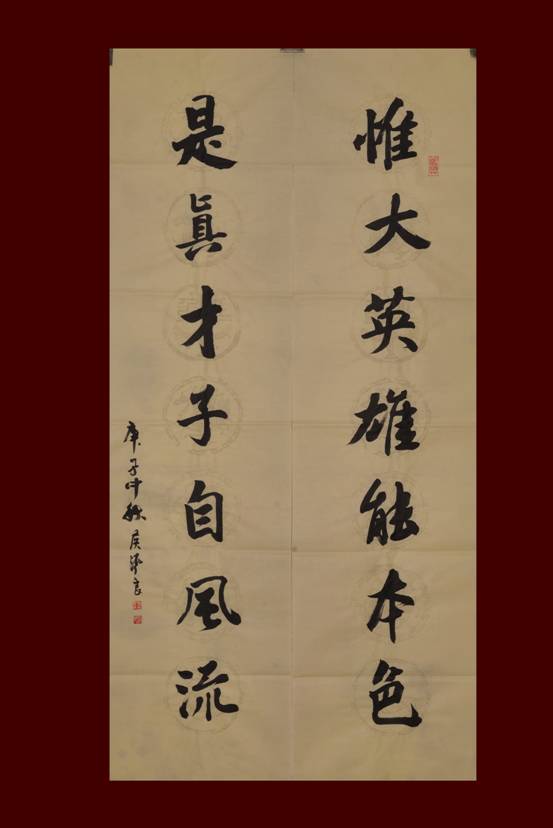 惟大英雄能本色
是真才子自風流
庚子中秋侯